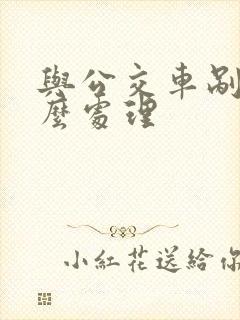 與公交車剮
麼處理
小紅花送給你